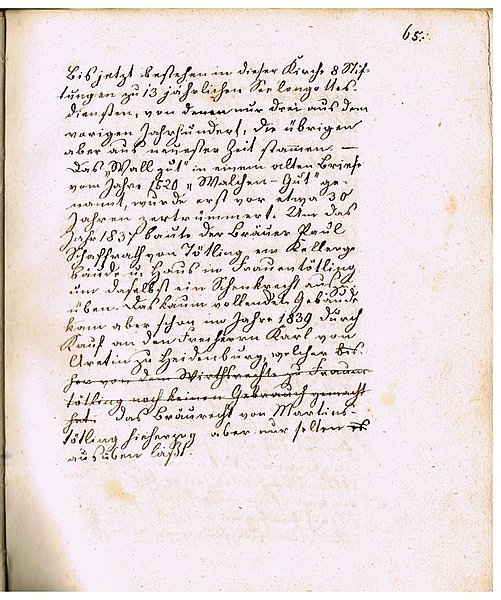 65.
Bis jetzt bestehen in dieser Kirche 8 Stif-
tungen zu 13 jährlichen Seelengottes
diensten, von denen nur drei aus dem
vorigen Jahrhundert, die übrigen
aber aus neuester Zeit stammen. —
Das „Wallgut" in einem alten Briefe
vom Jahre 1520 „Walchen-Gut" ge-
nannt, wurde erst vor etwa 30
Jahren zertrümmert. Um das
Jahr 1837 baute der Bräuer Paul
Schaffrath von Tötling ein Kellerge
bäude u. Haus in Frauentötling
um daselbst ein Schenkrecht auszu
üben. Das kaum vollendete Gebäude
kam aber schon im Jahre 1839 durch
Kauf an den Freiherrn Karl von
Aretin zu Heidenburg, welcher bis-
her von dem Wirthsrechte zu Frauen
tötling noch keinen Gebrauch gemacht
hat. das Bräurecht von Martins-
tötling hieherzog aber nur selten
ausüben läßt.